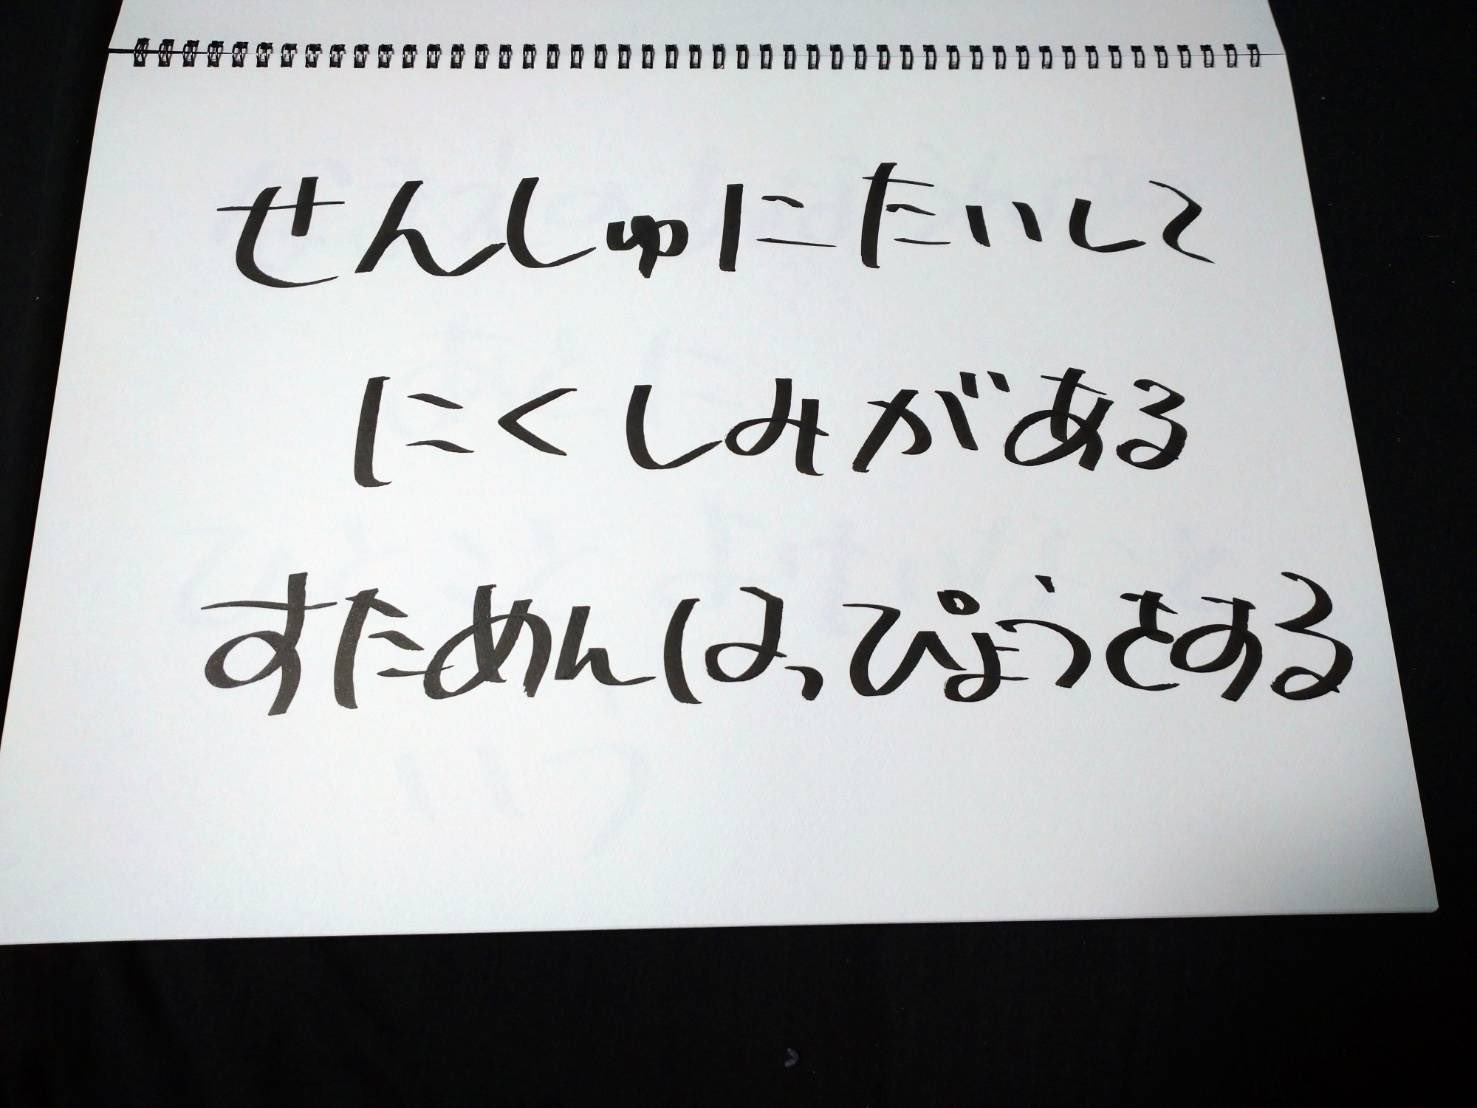 せんしゅにたいして
にくしみがある
すためんはっぴょうをする